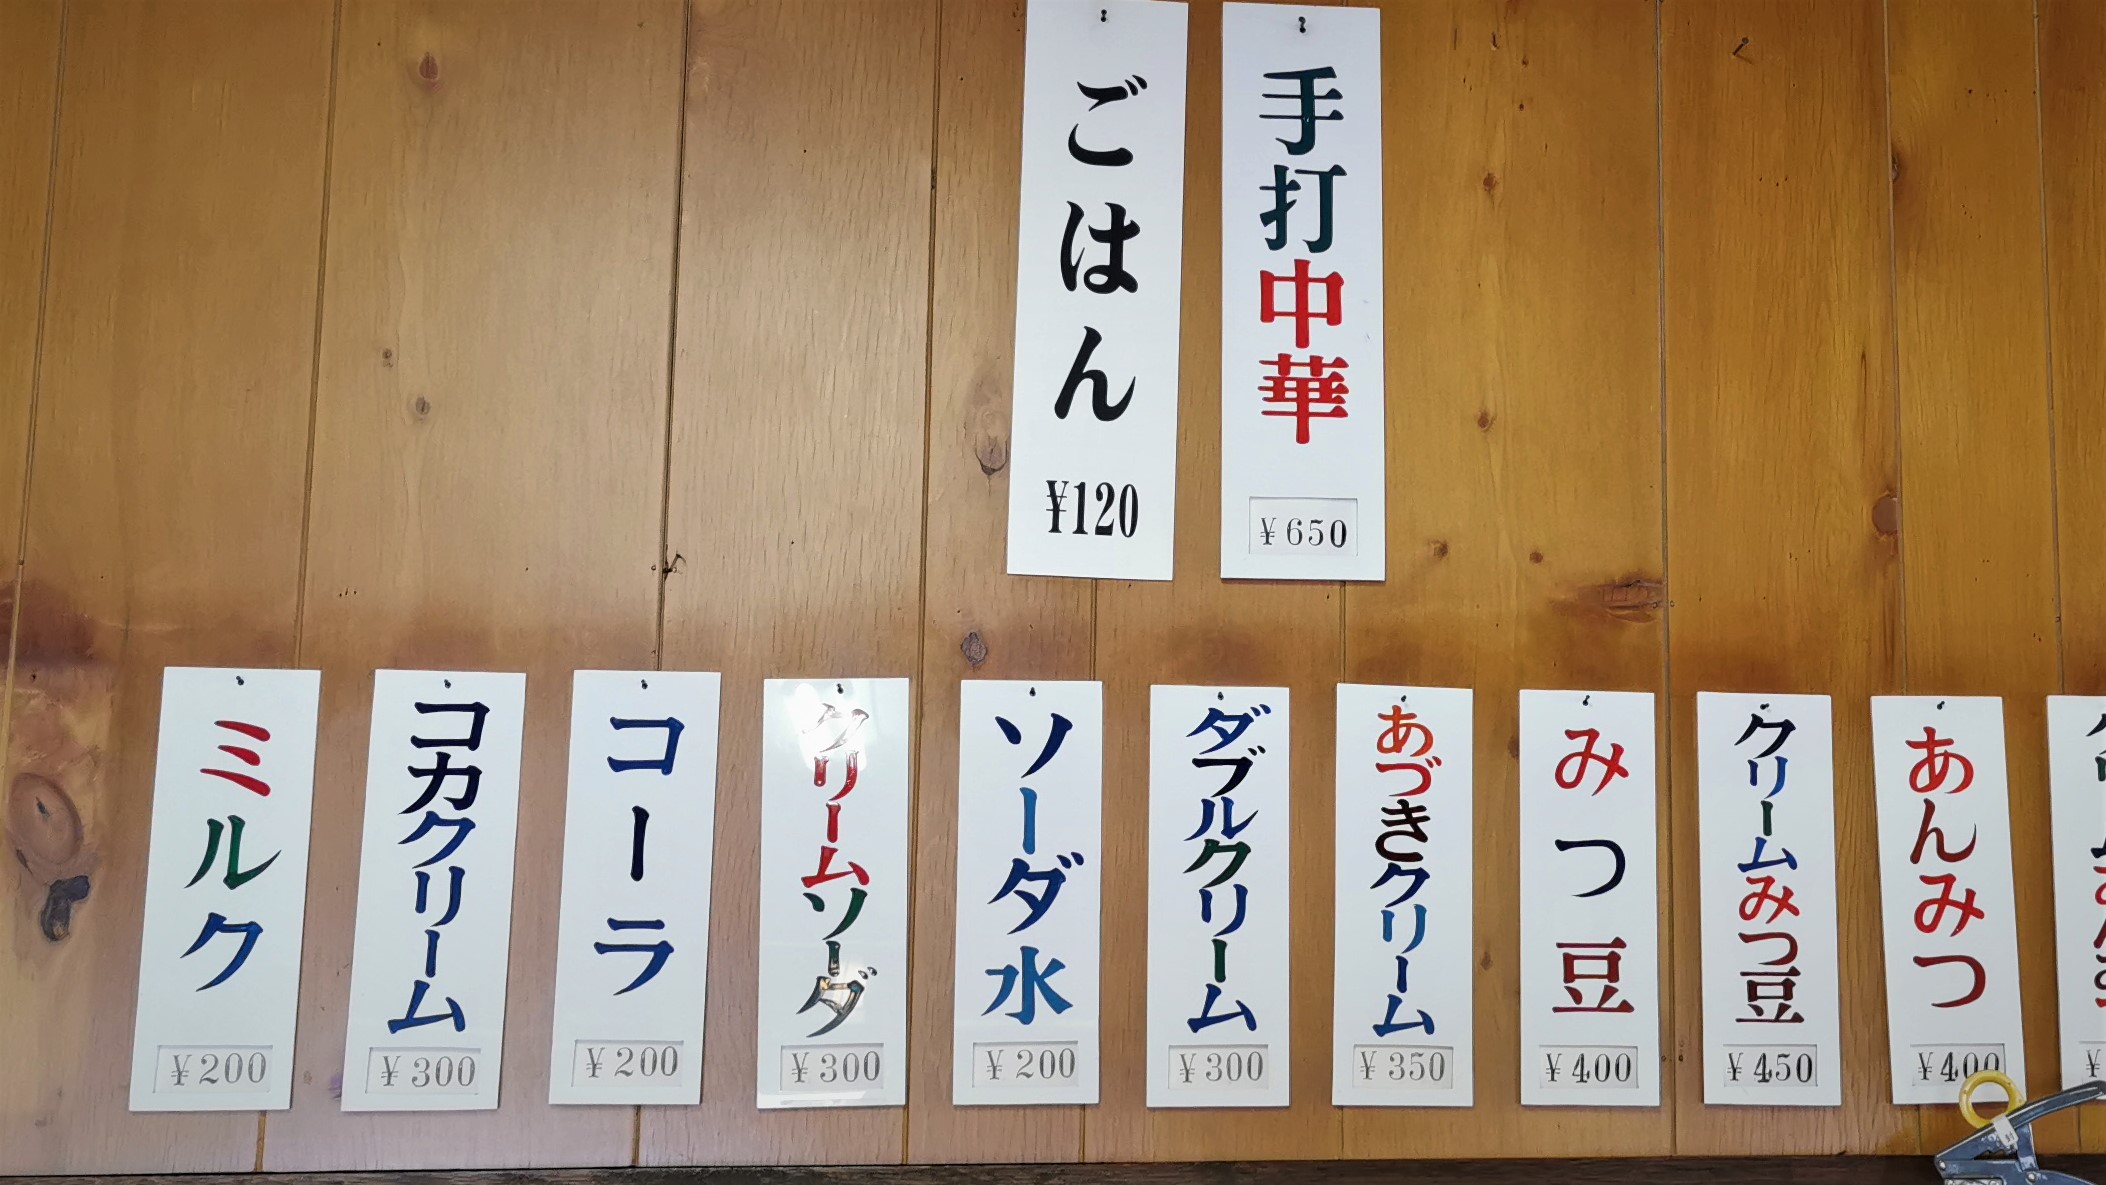 手打中華
¥650
ごはん
¥120
あんみつ
¥400
クリームみつ豆
¥450
みつ豆
¥400
あづきクリーム
¥350
ダブルクリーム
¥300
ソーダ水
¥200
クリームソーダ
¥300
コーラ
¥200
コカクリーム
¥300
ミルク
¥200